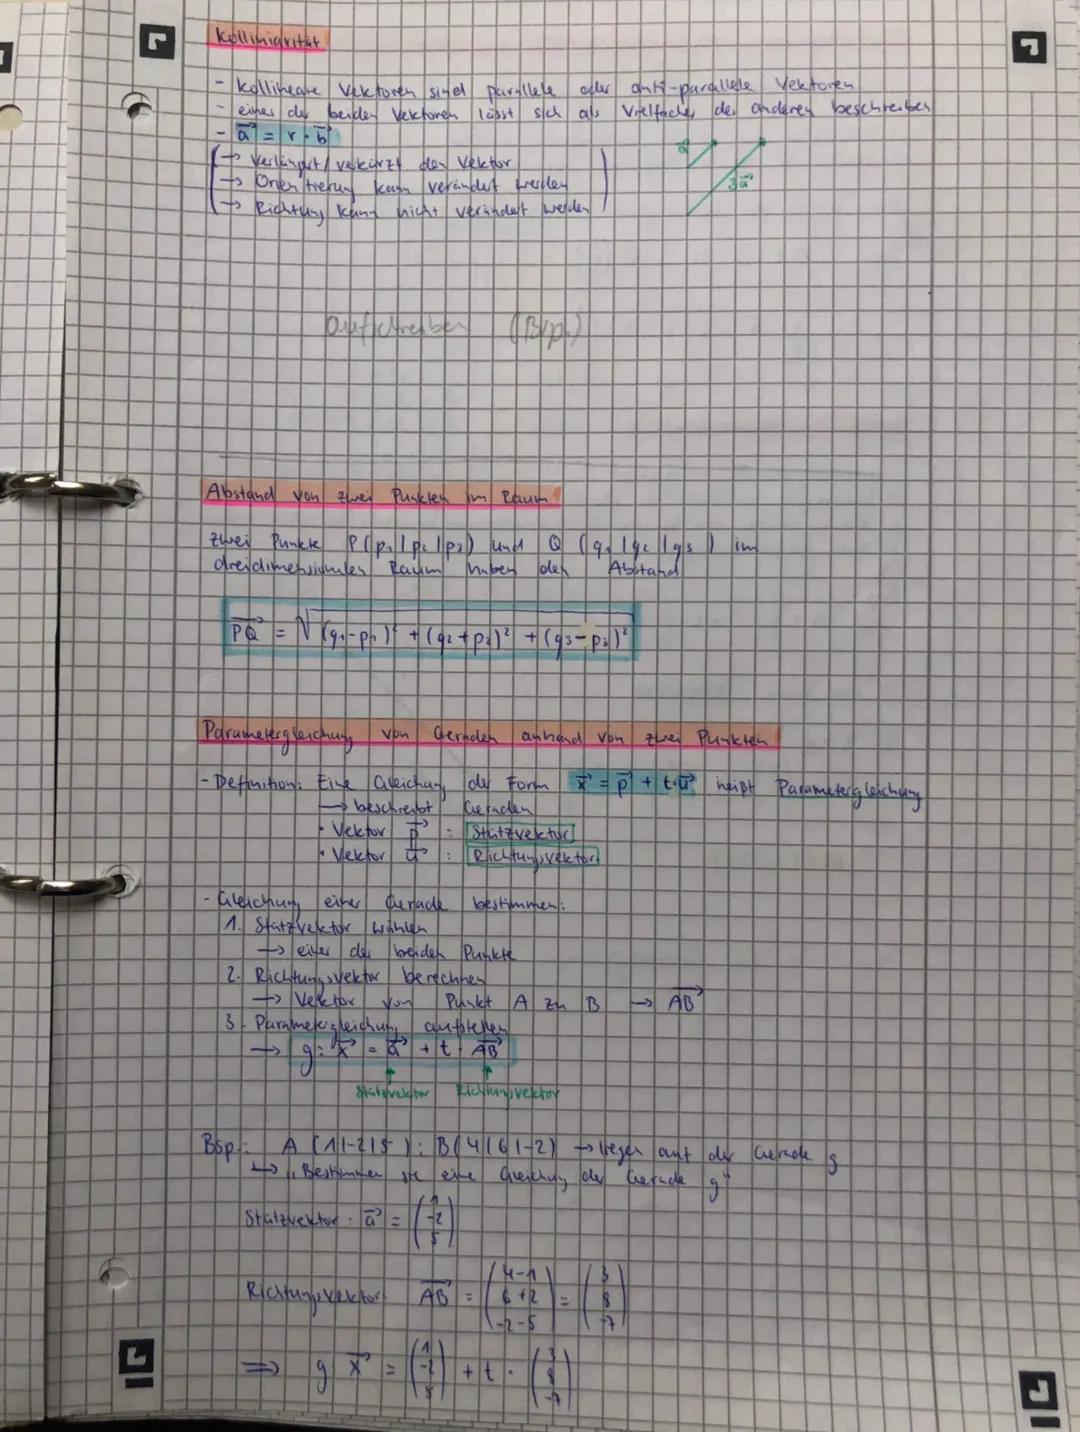 Kolliniarität
- kollineare Vektoren sind parallele oder anti-parallele Vektoren
- eines der beiden Vektoren lässt sich als Vielfaches des anderen beschreiben
- a⃗ = r · b⃗
→ Verlängert/verkürzt den Vektor
→ Orientierung kann verändert werden
→ Richtung kann nicht verändert werden
a⃗
3a⃗
aufschreiben (Bsp.)
Abstand von zwei Punkten im Raum
zwei Punkte P(p₁|p₂|p₃) und Q (q₁|q₂|q₃) im
dreidimensionalen Raum haben den Abstand
P͞Q⃗ = √(q₁-p₁)² + (q₂+p₂)² + (q₃-p₃)²
Parametergleichung von Geraden anhand von zwei Punkten
- Definition: Eine Gleichung der Form x⃗ = p⃗ + t·u⃗ heißt Parametergleichung
→ beschreibt Geraden
• Vektor p⃗ : Stützvektor
• Vektor u⃗ : Richtungsvektor
- Gleichung einer Gerade bestimmen:
1. Stützvektor wählen
→ einer der beiden Punkte
2. Richtungsvektor berechnen
→ Vektor von Punkt A zu B → AB⃗
3. Parametergleichung aufstellen
→ g: x⃗ = a⃗ + t · AB⃗
Stützvektor Richtungsvektor
Bsp.: A (1|-2|5); B(4|6|-2) → liegen auf der Gerade g
↳ "Bestimmen sie eine Gleichung der Gerade g"
Stützvektor: a⃗ = (1 -2 5)
Richtungsvektor AB⃗ = (4-1 6+2 -2-5) = (3 8 -7)
⇒ g x⃗ = (1 -2 5) + t · (3 8 -7)